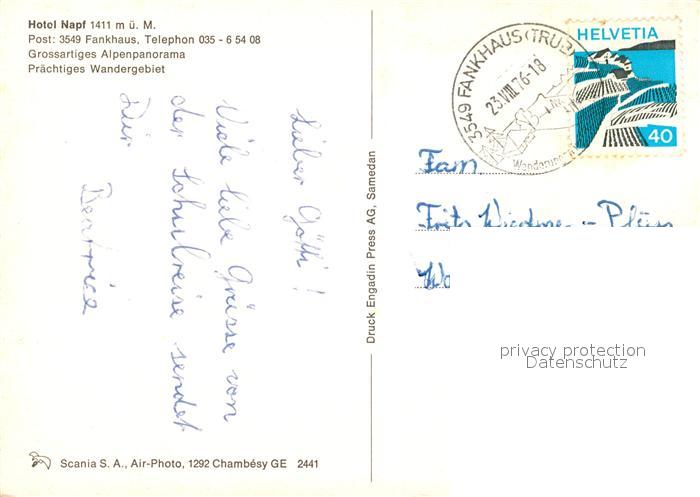 Hotel Napf 1411 m ü. M.
Post: 3549 Fankhaus, Telephon 035 - 6 54 08
Grossartiges Alpenpanorama
Prächtiges Wandergebiet
Lieber Götti!
Viele liebe Grüsse von
der Schulreise sendet
Dir
Beatrice
Druck Engadin Press AG, Samedan
3549 FANKHAUS (TRUB)
23.VIII.76-18
HELVETIA
40
Fam
Fritz
privacy protection
Datenschutz
Scania S. A., Air-Photo, 1292 Chambésy GE 2441